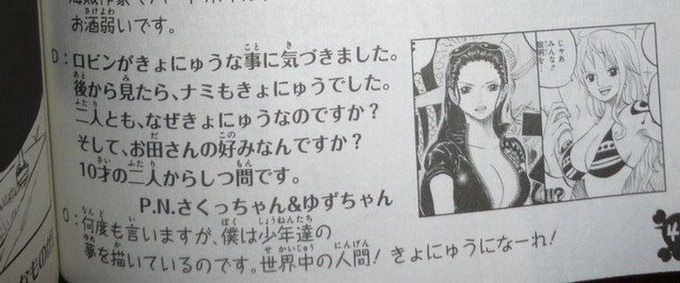 お酒弱いです。
D：ロビンがきょにゅうな事に気づきました。
後から見たら、ナミもきょにゅうでした。
二人とも、なぜきょにゅうなのですか？
そして、お田さんの好みなんですか？
10才の二人からしつ問です。
P.N.さくっちゃん&ゆずちゃん
O：何度も言いますが、僕は少年達の
夢を描いているのです。世界中の人間！きょにゅうになーれ！
じゃあ
みんな
!!?